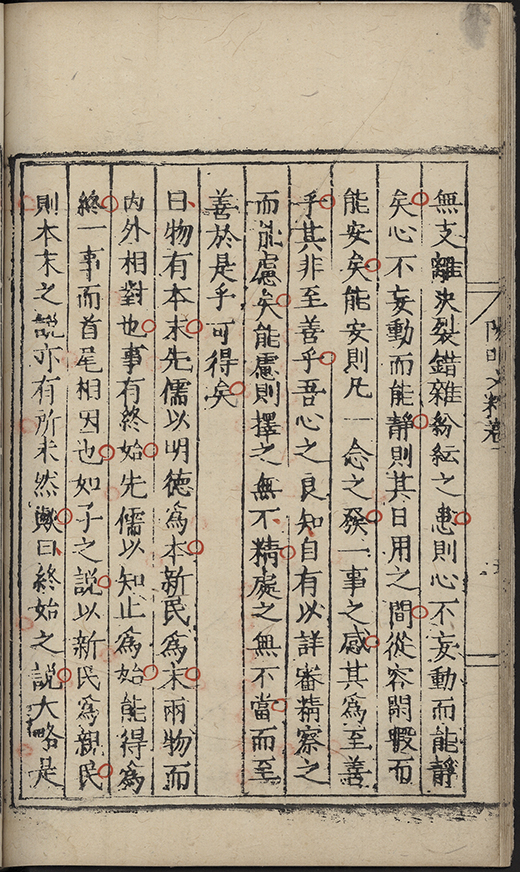 陽明文粹卷
無支離决裂錯雜紛紜之患則心不妄動而能靜
矣心不妄動而能靜則其日用之間從容閑暇而
能安矣能安則凡一念之發一事之感其爲至善
乎其非至善乎吾心之良知自有以詳審精察之
而能慮矣能慮則擇之無不精處之無不當而至
善於是乎可得矣
曰物有本末先儒以明德爲本新民爲末兩物而
內外相對也事有終始先儒以知止爲始能得爲
終一事而首尾相因也如子之說以新民爲親民
則本末之說亦有所未然歟曰終始之說大略是